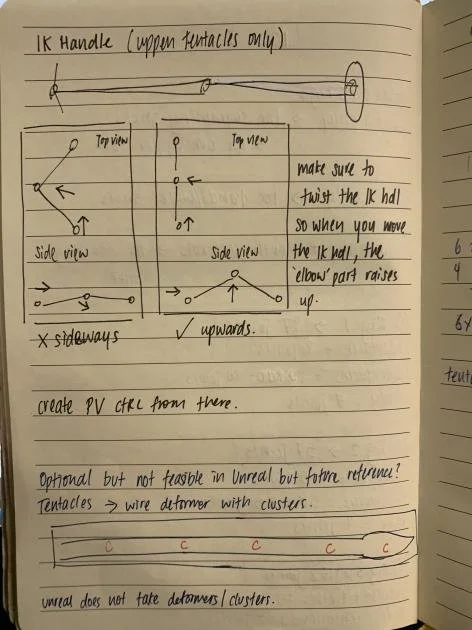 IK Handle (upper tentacles only)
Top view
Top view
Side view
Side view
make sure to
twist the IK hdl
so when you move
the IK hdl, the
'elbow' part raises
up.
X sideways
✓ upwards.
create PV CTRL from there.
Optional but not feasible in Unreal but future reference?
Tentacles → wire deformer with clusters.
C C C C C
unreal does not take deformers/clusters.
6
4
6x
tent